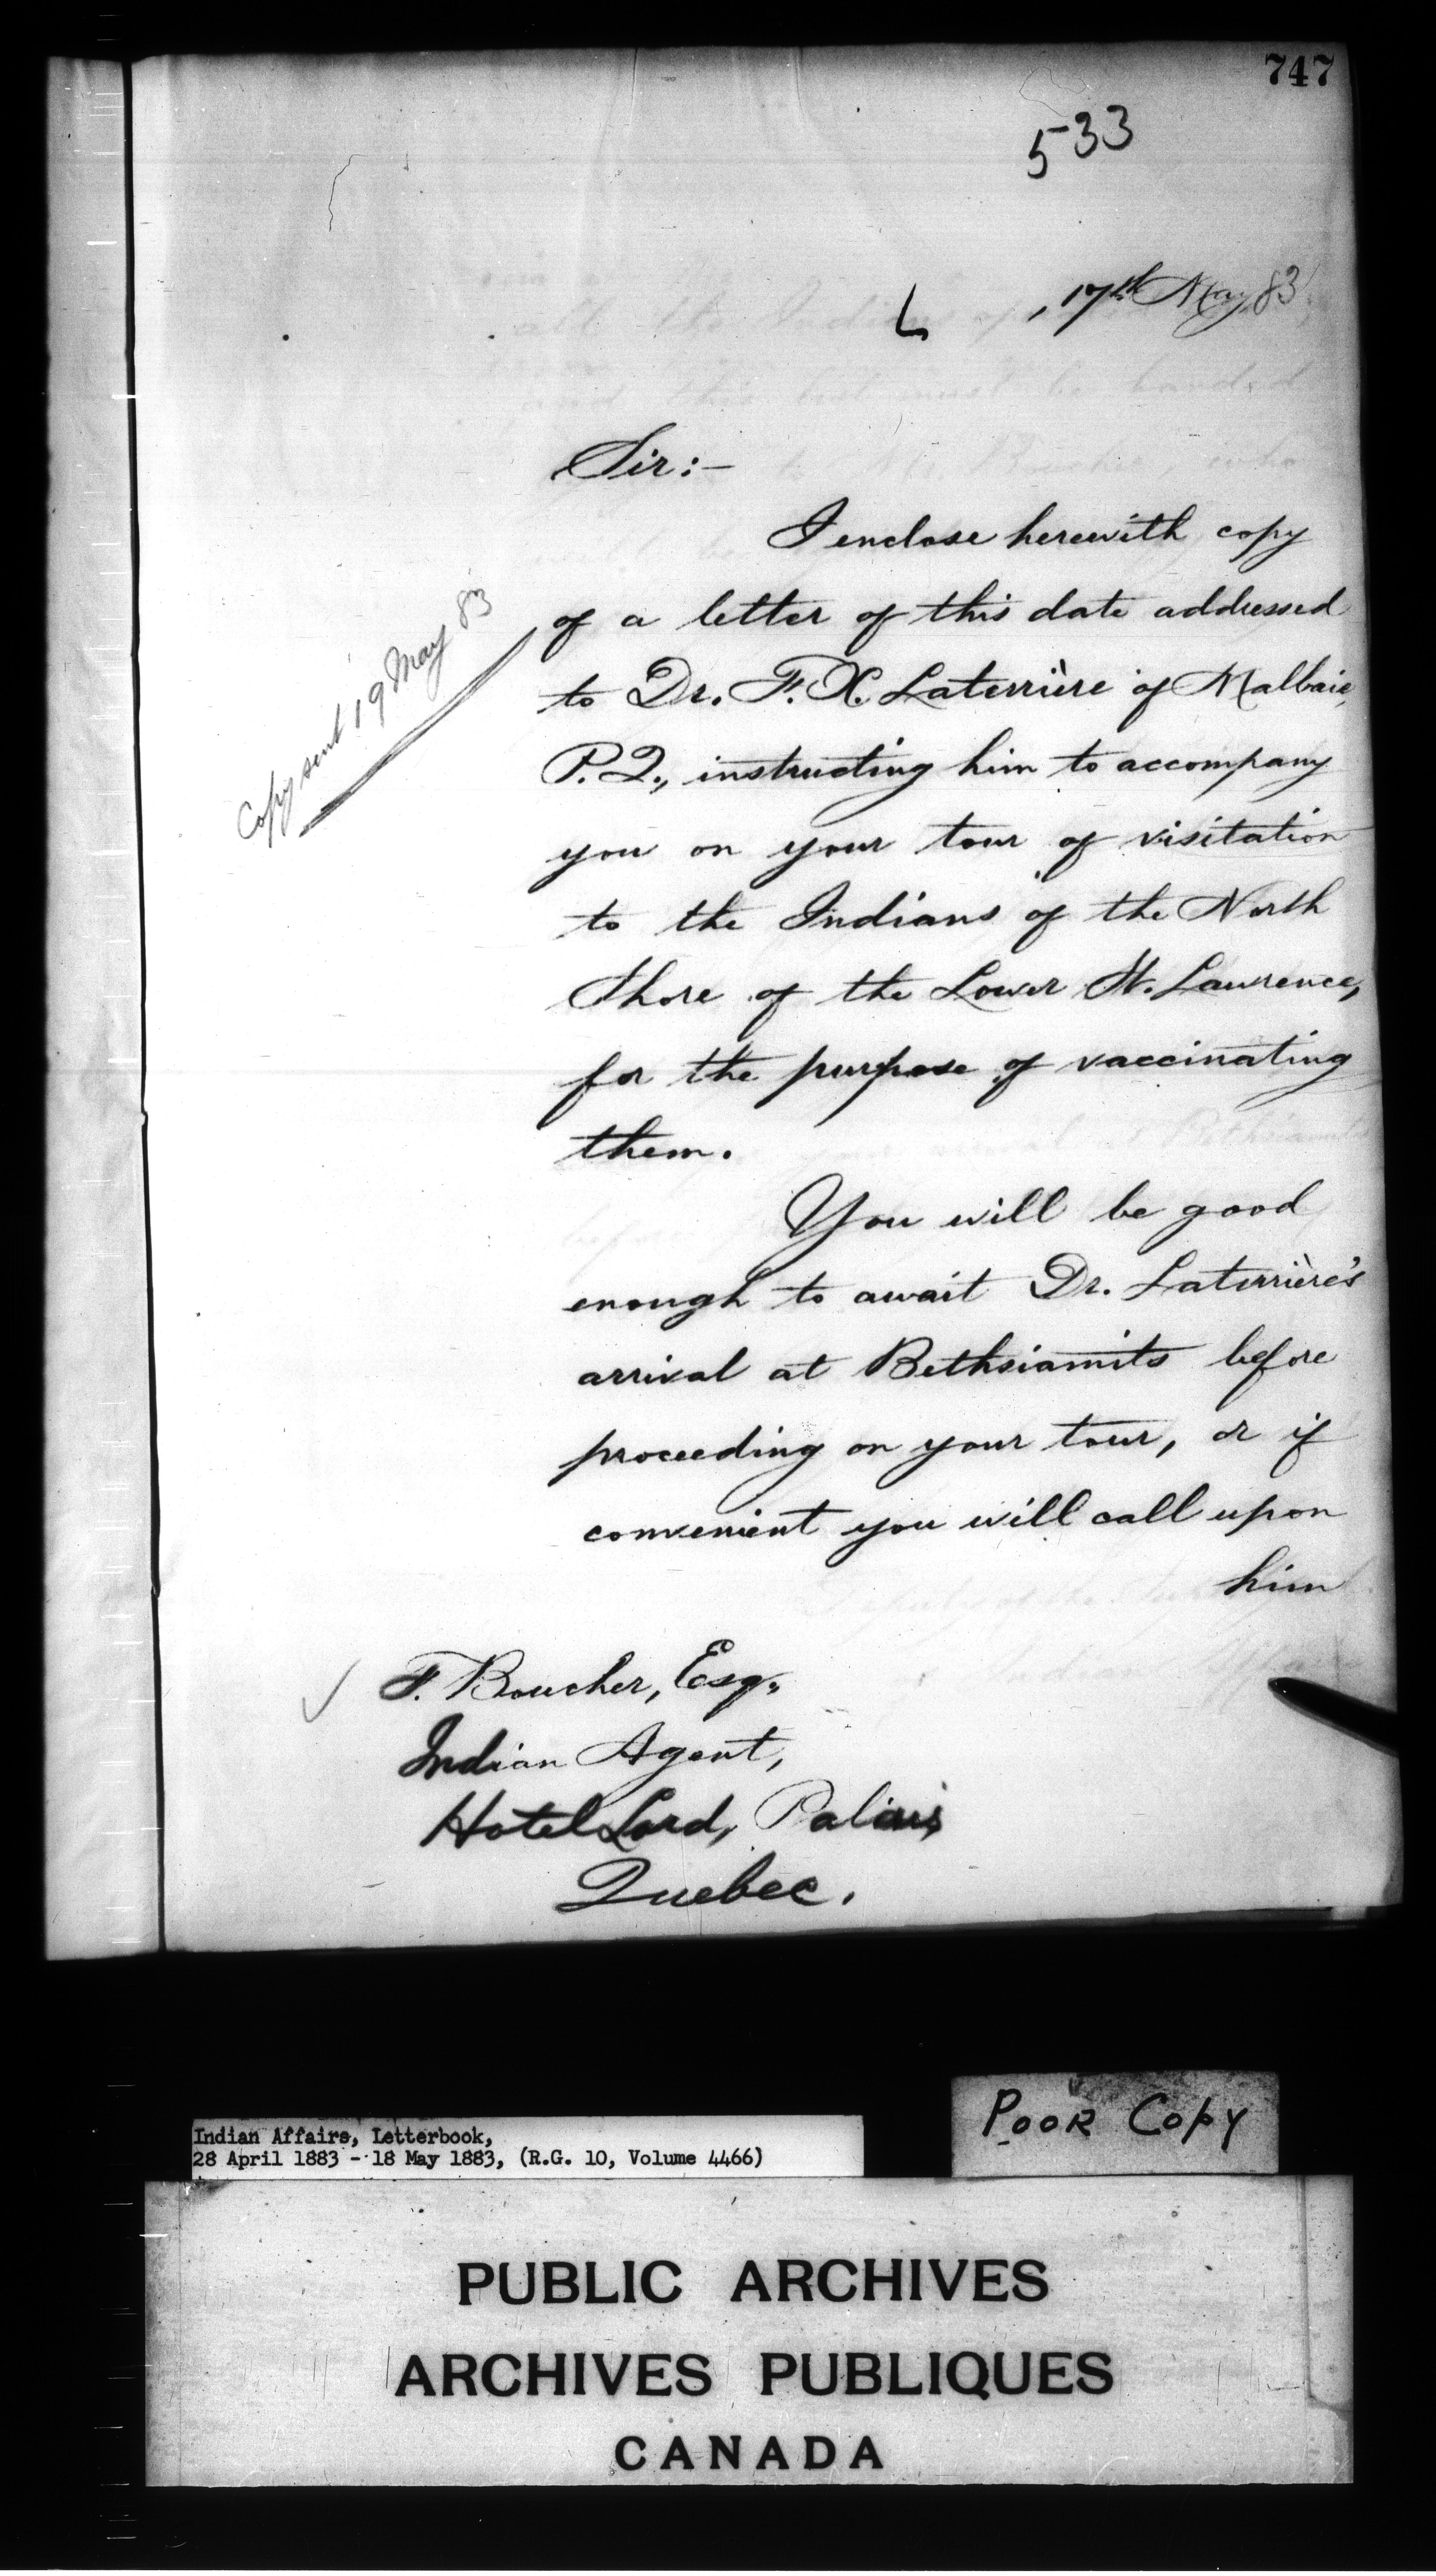 747
533
L , 17th May 83
Sir:—
I enclose herewith copy
of a letter of this date addressed
to Dr. F. X. Laterrière of Malbaie,
P.Q., instructing him to accompany
you on your tour of visitation
to the Indians of the North
Shore of the Lower St. Lawrence,
for the purpose of vaccinating
them.
You will be good
enough to await Dr. Laterrière's
arrival at Bethsiamits before
proceeding on your tour, or if
convenient you will call upon
him
Copy sent 19 May 83
F. Boucher, Esq.,
Indian Agent,
Hotel Lard, Palais
Quebec.
Poor Copy
Indian Affairs, Letterbook,
28 April 1883 - 18 May 1883, (R.G. 10, Volume 4466)
PUBLIC ARCHIVES
ARCHIVES PUBLIQUES
CANADA